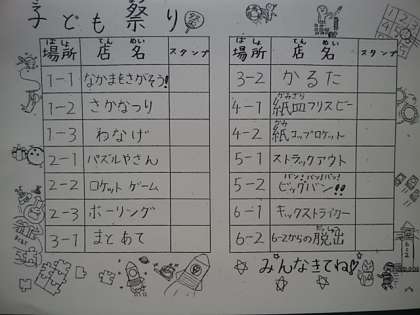 子ども祭り
場所 店名 スタンプ
1-1 なかまをさがそう!
1-2 さかなつり
1-3 わなげ
2-1 パズルやさん
2-2 ロケットゲーム
2-3 ボーリング
3-1 まとあて
場所 店名 スタンプ
3-2 かるた
4-1 紙皿フリスビー
4-2 紙コップロケット
5-1 ストラックアウト
5-2 バン!バン!バン!
ビッグバン!!
6-1 キックストライカー
6-2 6-2からの脱出
みんなきてね♡